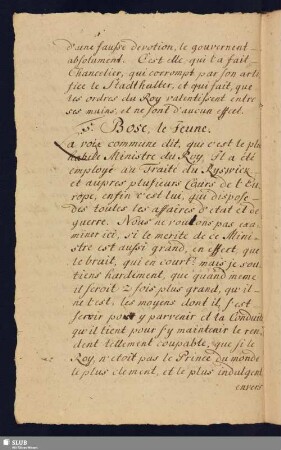 d'une fausse devotion, le gouvernent
absolument. C'est elle, qui l'a fait
Chancelier, qui corrompt par son arti
fice le Stadthalter, et qui fait, que
les ordres du Roy ralentissent entre
ses mains, et ne sont d'aucun effect.
5. Bose, le Jeune.
la voix commune dit, que c'est le plus
habile Ministre du Roy. Il a été
employé au Traité du Ryswick
et aupres plusieurs Cours de l'Eu-
rope, enfin c'est lui, qui dispose
des toutes les affaires d'etat et de
guerre. Nous ne voulons pas exa
miner ici, si le merite de ce Mini
stre est aussi grand, en effect que
le bruit, qui en court: mais je sou
tiens hardiment, que quand meme
il seroit 2 fois plus grand, qu'il
ne l'est: les moyens dont il, s'est
servir pour y parvenir et la Conduite
qu'il tient pour s'y maintenir le ren
dent tellement coupable, que si le
Roy, n'etoit pas le Prince du monde
le plus clement, et le plus indulgent
envers
SLUB